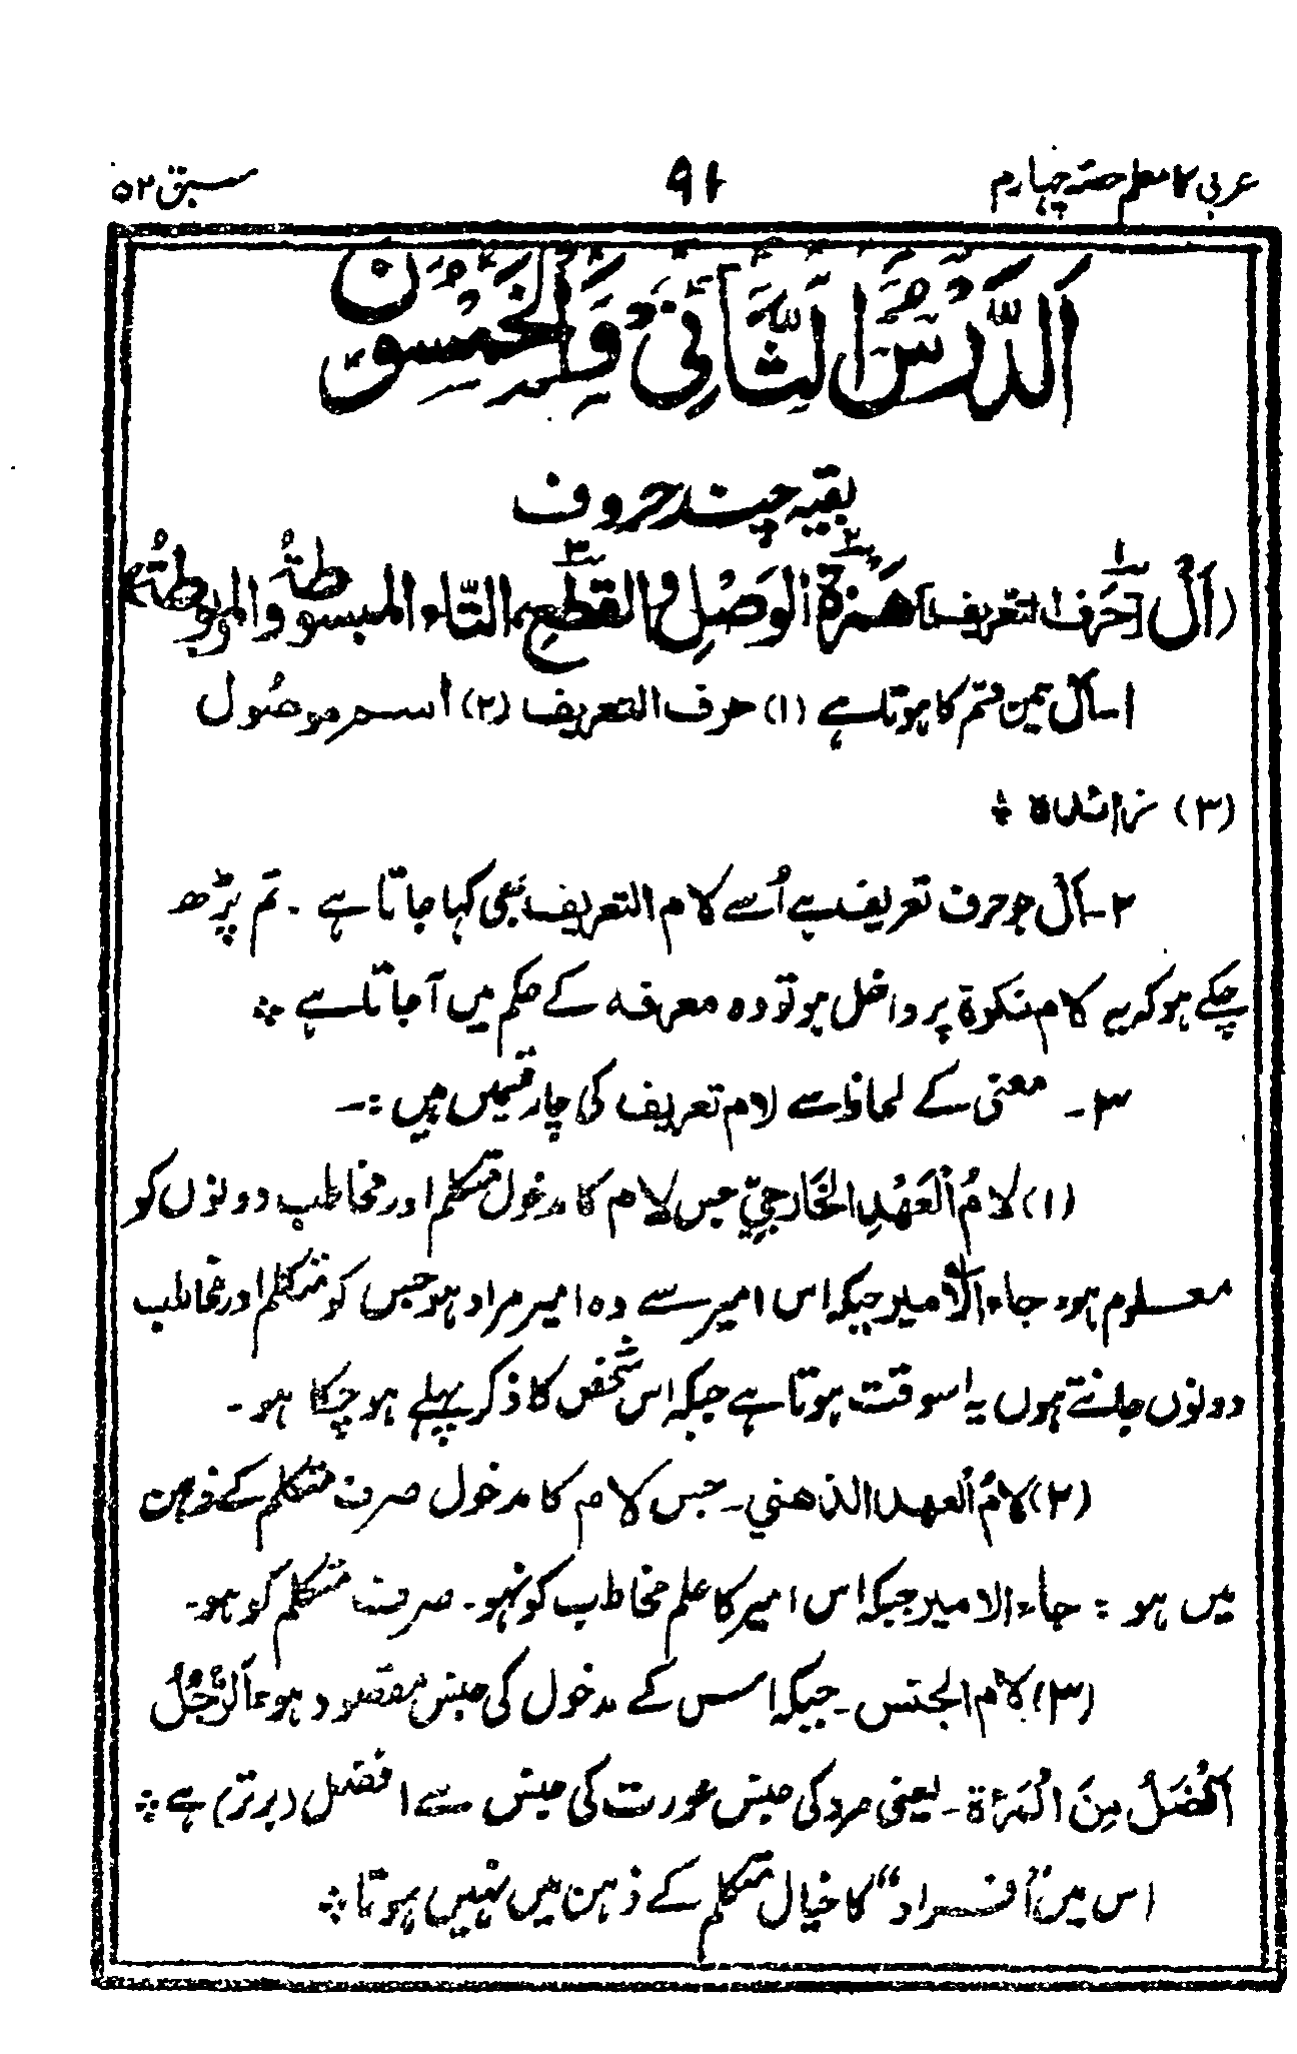 عربی کا معلم حصّہ چہارم
۹۱
سبق ۵۲
اَلدَّرْسُ الثَّانِیْ وَالْخَمْسُوْنَ
بقیہ چند حروف
(اَلْ [حَرْفُ التعریف]، هَمْزَةُ الْوَصْلِ والْقَطْعِ، التَّاء المبسوطةُ والمربوطةُ)
۱۔ اَلْ تین قسم کا ہوتا ہے (۱) حرف التعریف (۲) اسم موصُول
(۳) زائدہ ÷
۲۔ اَلْ جو حرف تعریف ہے اُسے لام التعریف بھی کہا جاتا ہے ۔ تم پڑھ
چکے ہو کہ یہ لام نکرۃ پر داخل ہو تو وہ معرفہ کے حکم میں آ جاتا ہے ÷
۳۔ معنی کے لحاظ سے لام تعریف کی چار قسمیں ہیں :۔
(۱) لامُ الْعَهْدِ الخَارجيِّ جس لام کا مدخول متکلم اور مخاطب دونوں کو
معلوم ہو: جاء الامیر جبکہ اس امیر سے وہ امیر مراد ہو جس کو متکلم اور مخاطب
دونوں جانتے ہوں یہ اسوقت ہوتا ہے جبکہ اس شخص کا ذکر پہلے ہو چکا ہو ۔
(۲) لامُ العهد الذهني ۔ جس لام کا مدخول صرف متکلم کے ذہن
میں ہو : جاء الامیر جبکہ اس امیر کا علم مخاطب کو نہو ۔ صرف متکلم کو ہو ۔
(۳) لام الجنس ۔ جبکہ اس کے مدخول کی جنس مقصود ہو: اَلرَّجُلُ
اَفْضَلُ مِنَ الْمَرْأَة ۔ یعنی مرد کی جنس عورت کی جنس سے افضل (برتر) ہے ÷
اس میں "اَفراد" کا خیال متکلم کے ذہن میں نہیں ہوتا ÷